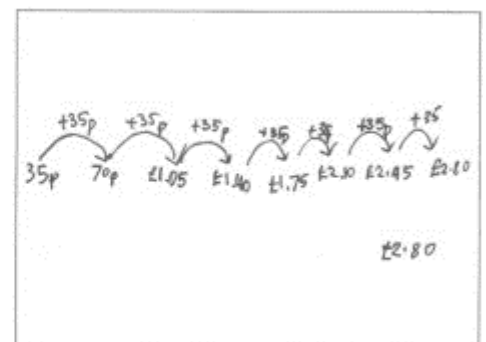 +35p +35p +35p +35p +35 +35p +35
35p 70p £1.05 £1.40 £1.75 £2.10 £2.45 £2.80
£2.80